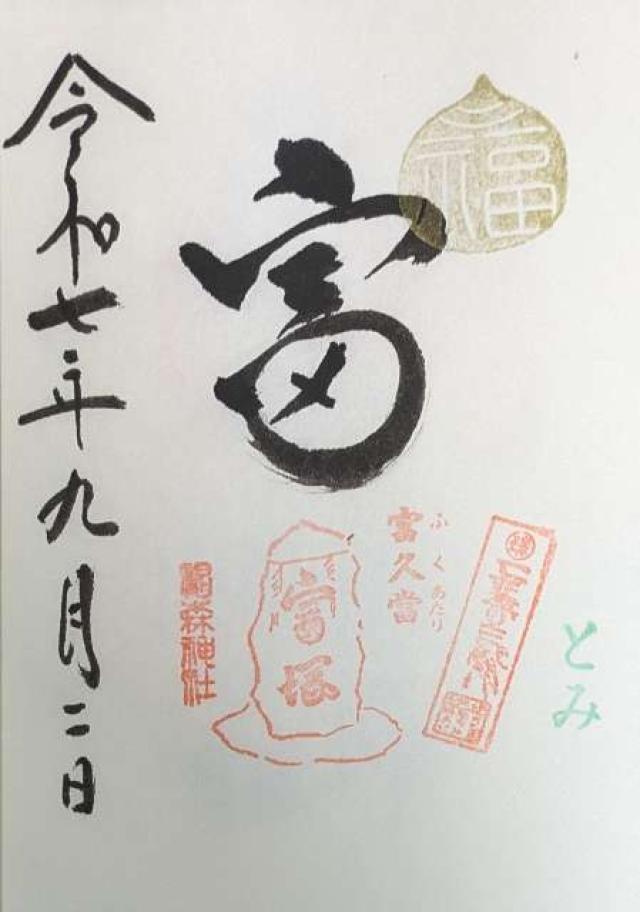 とみ
福
富
富久當
ふくあたり
富塚
椙森神社
令和七年九月二日